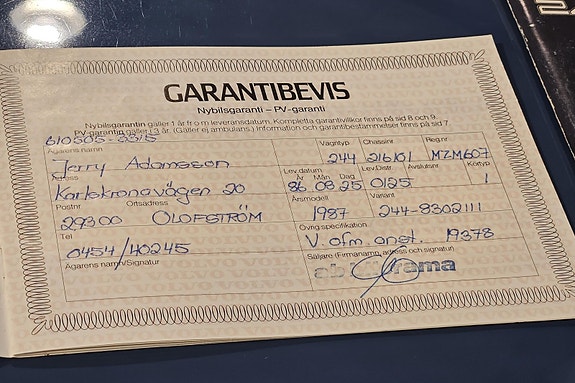 GARANTIBEVIS
Nybilsgaranti – PV-garanti
Nybilsgarantin gäller 1 år fr o m leveransdatum. Kompletta garantivillkor finns på sid 8 och 9.
PV-garantin gäller i 3 år. (Gäller ej ambulans.) Information och garantibestämmelser finns på sid 7
610505-5515
Ägarens namn Vagntyp Chassinr Reg.nr
Jerry Adamsson 244 216101 MZM607
Adress Lev.datum År Mån Dag Lev.Distr. Avslutsnr Körtyp
Karlskronavägen 20 86 09 25 0125 1
Postnr Ortsadress Årsmodell Variant
29300 OLOFSTRÖM 1987 244-8302111
Tel Övrig specifikation
0454/40245 V. ofm. anst. 19378
Ägarens namn/Signatur Säljare (Firmanamn, adress och signatur)
rama